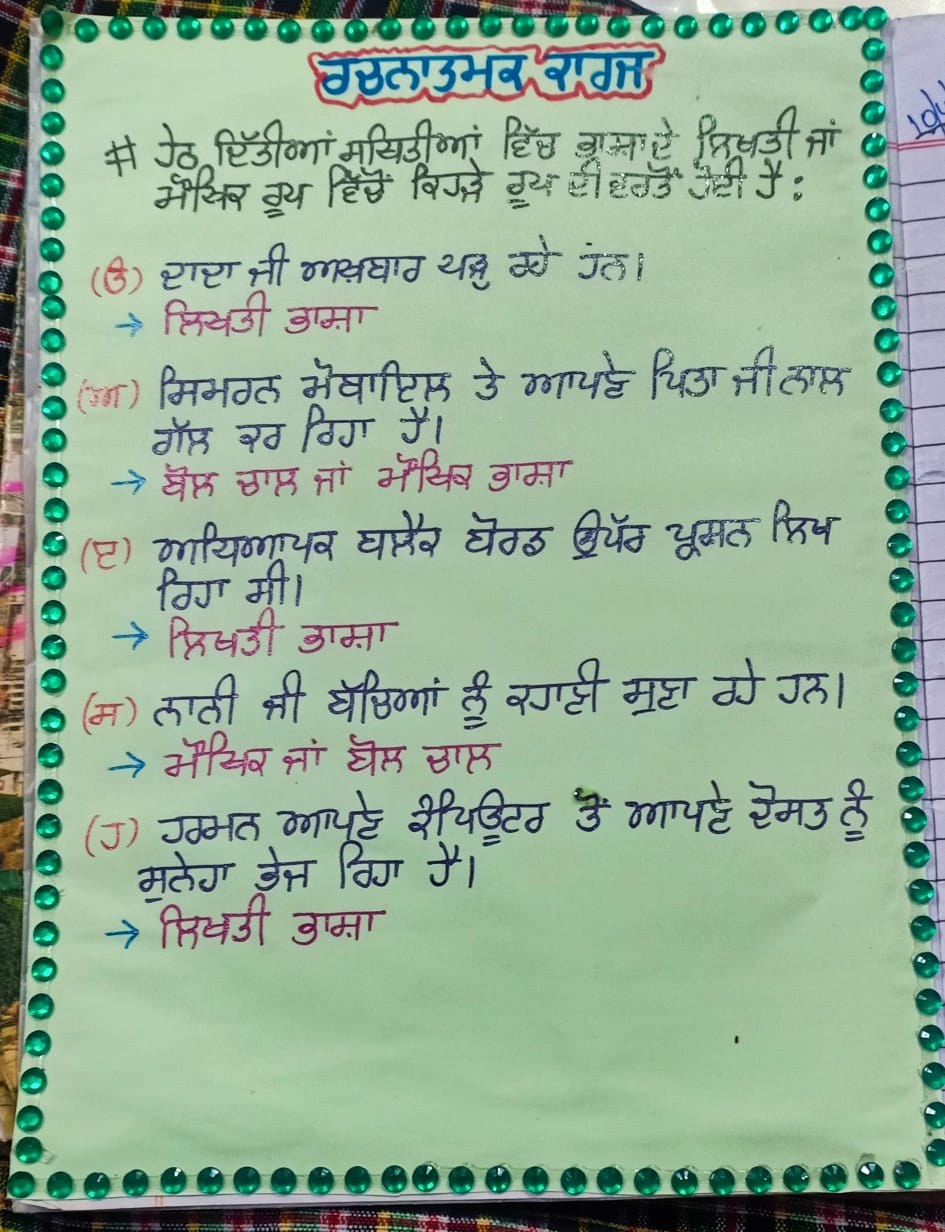 ਰਚਨਾਤਮਕ ਕਾਰਜ
# ਹੇਠ ਦਿੱਤੀਆਂ ਸਥਿਤੀਆਂ ਵਿੱਚ ਭਾਸ਼ਾ ਦੇ ਲਿਖਤੀ ਜਾਂ
ਮੌਖਿਕ ਰੂਪ ਵਿੱਚੋਂ ਕਿਹੜੇ ਰੂਪ ਦੀ ਵਰਤੋਂ ਹੋਈ ਹੈ :
(ੳ) ਦਾਦਾ ਜੀ ਅਖ਼ਬਾਰ ਪੜ੍ਹ ਰਹੇ ਹਨ।
→ ਲਿਖਤੀ ਭਾਸ਼ਾ
(ਅ) ਸਿਮਰਨ ਮੋਬਾਇਲ ਤੇ ਆਪਣੇ ਪਿਤਾ ਜੀ ਨਾਲ
ਗੱਲ ਕਰ ਰਿਹਾ ਹੈ।
→ ਬੋਲ ਚਾਲ ਜਾਂ ਮੌਖਿਕ ਭਾਸ਼ਾ
(ੲ) ਅਧਿਆਪਕ ਬਲੈਕ ਬੋਰਡ ਉੱਪਰ ਪ੍ਰਸ਼ਨ ਲਿਖ
ਰਿਹਾ ਸੀ।
→ ਲਿਖਤੀ ਭਾਸ਼ਾ
(ਸ) ਨਾਨੀ ਜੀ ਬੱਚਿਆਂ ਨੂੰ ਕਹਾਣੀ ਸੁਣਾ ਰਹੇ ਹਨ।
→ ਮੌਖਿਕ ਜਾਂ ਬੋਲ ਚਾਲ
(ਹ) ਹਰਮਨ ਆਪਣੇ ਕੰਪਿਊਟਰ ਤੋਂ ਆਪਣੇ ਦੋਸਤ ਨੂੰ
ਸੁਨੇਹਾ ਭੇਜ ਰਿਹਾ ਹੈ।
→ ਲਿਖਤੀ ਭਾਸ਼ਾ